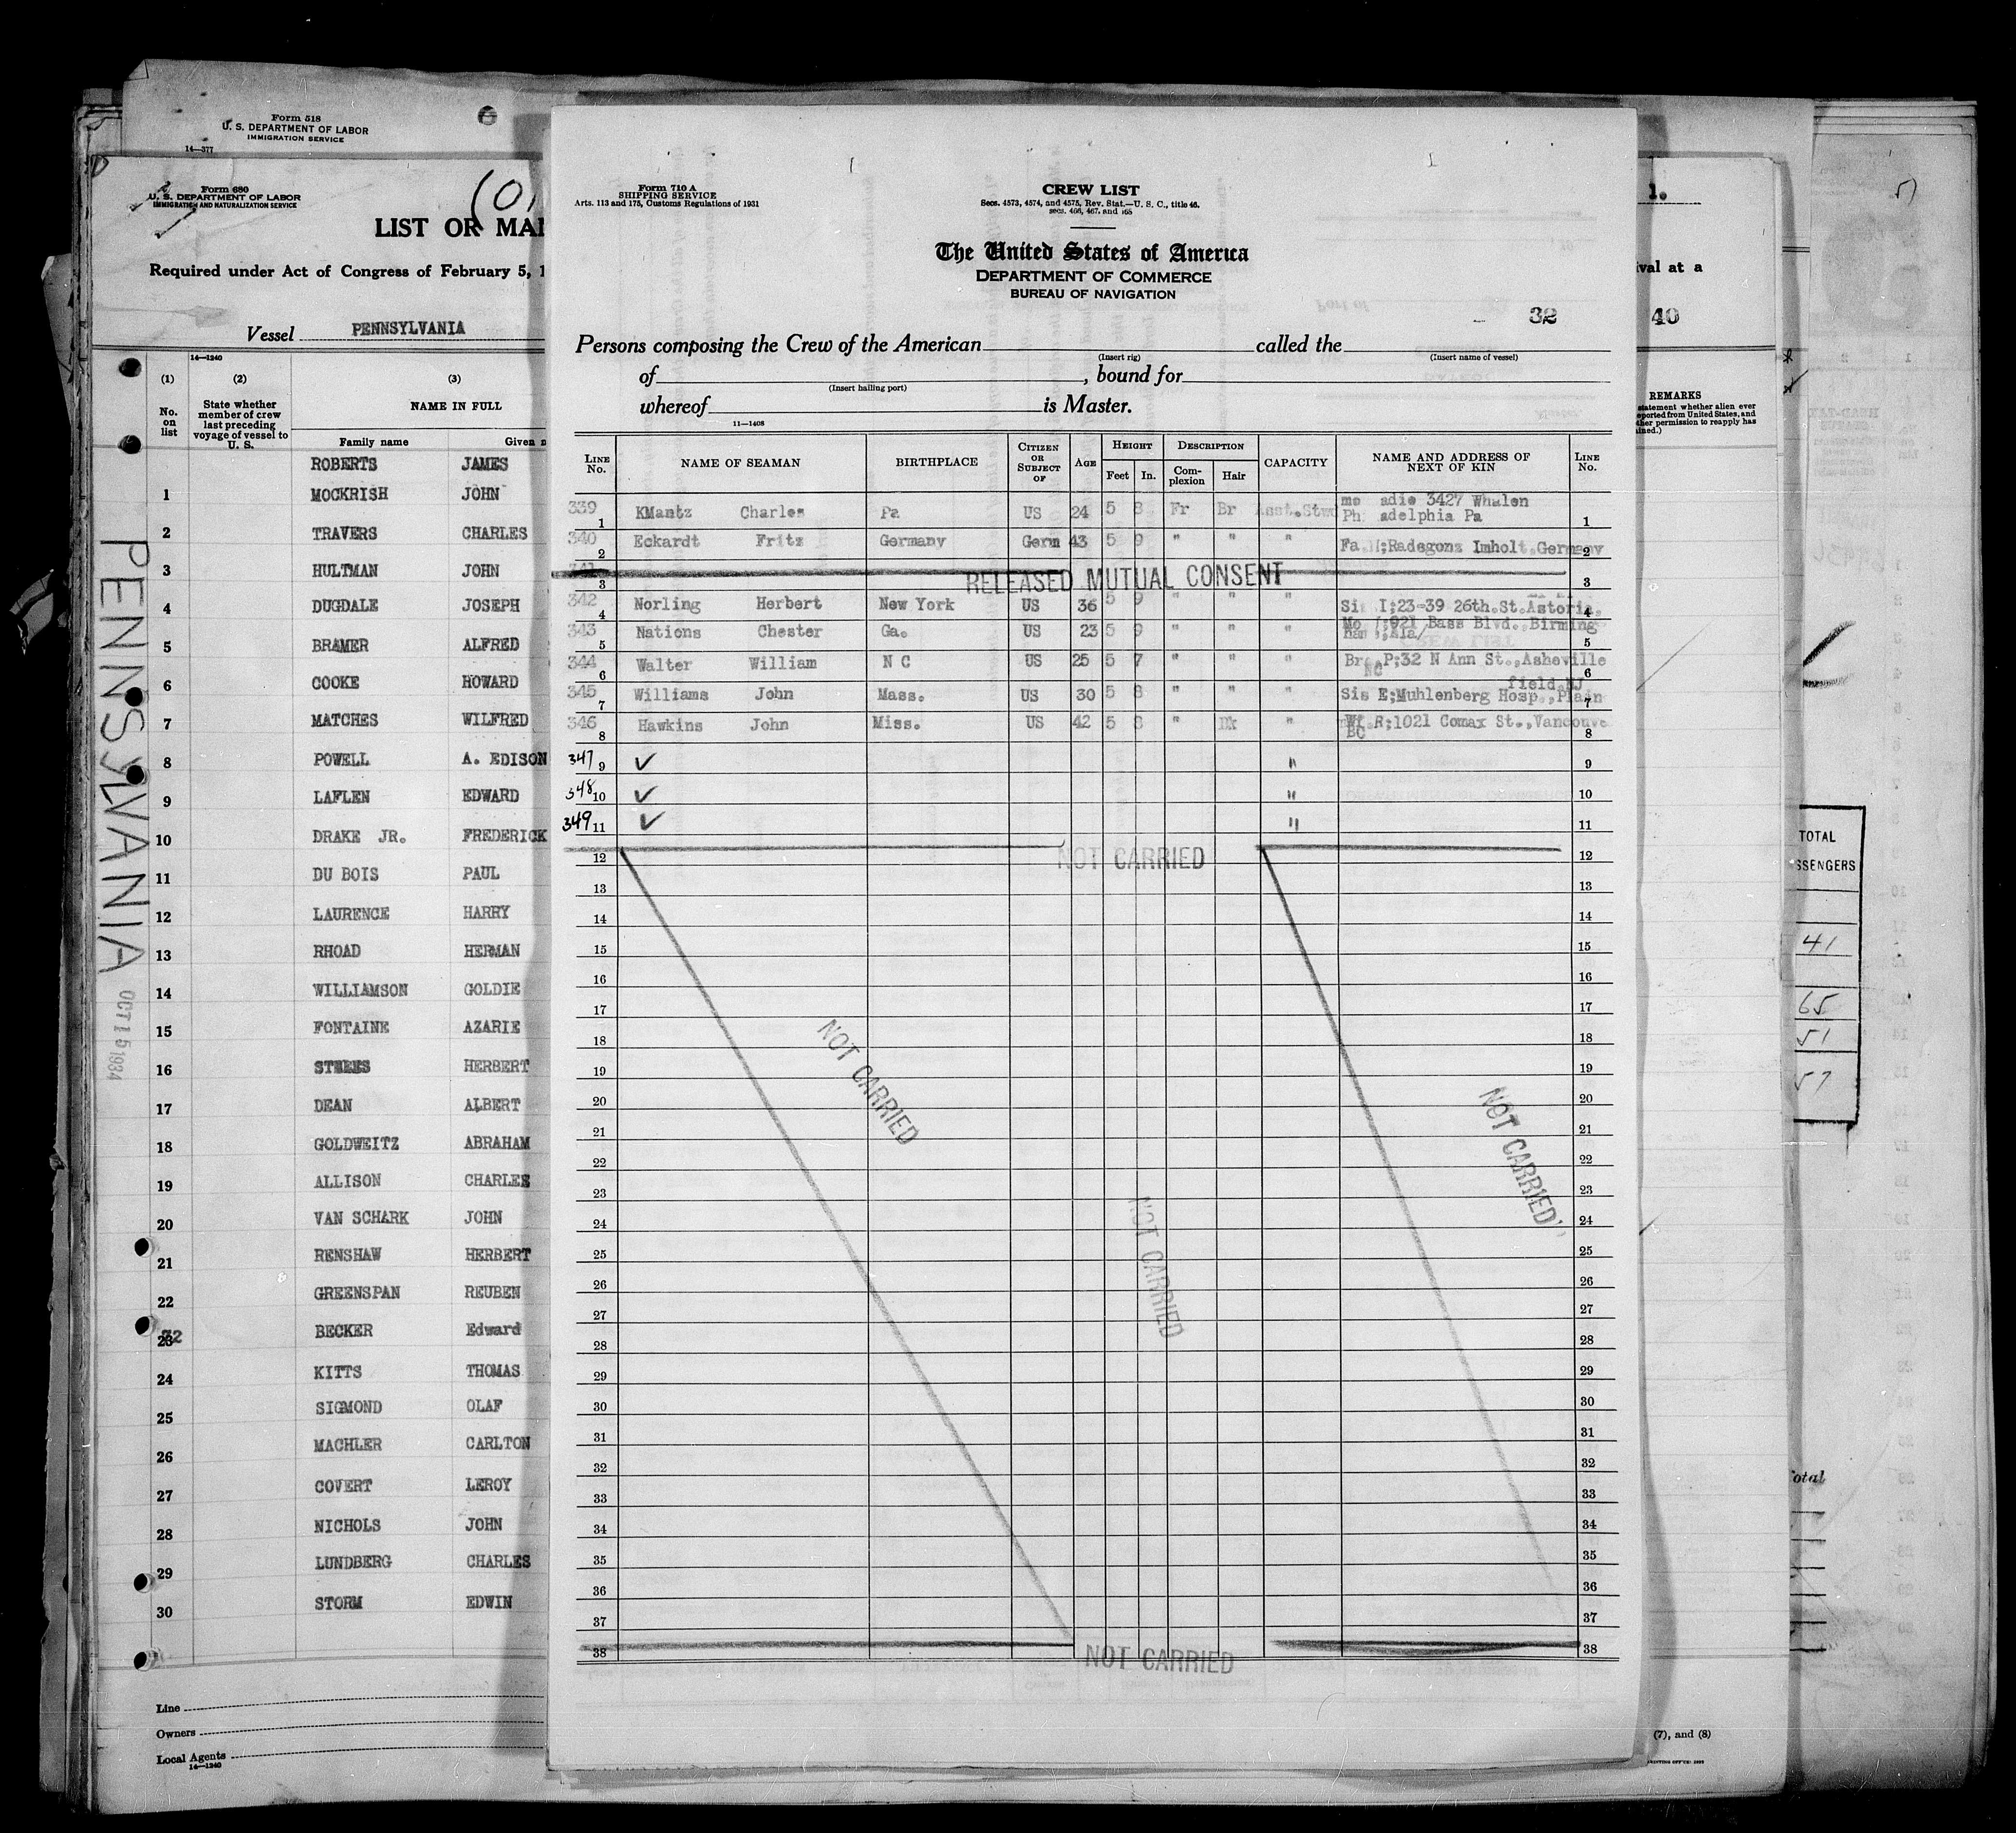 Form 518
U. S. DEPARTMENT OF LABOR
IMMIGRATION SERVICE
14—377
Form 680
U. S. DEPARTMENT OF LABOR
IMMIGRATION AND NATURALIZATION SERVICE
LIST OR MA
Required under Act of Congress of February 5, 1
Vessel PENNSYLVANIA
14—1240
(1) (2) (3)
No. on list
State whether member of crew last preceding voyage of vessel to U. S.
NAME IN FULL
Family name Given n
ROBERTS JAMES
1 MOCKRISH JOHN
2 TRAVERS CHARLES
3 HULTMAN JOHN
4 DUGDALE JOSEPH
5 BRAMER ALFRED
6 COOKE HOWARD
7 MATCHES WILFRED
8 POWELL A. EDISON
9 LAFLEN EDWARD
10 DRAKE JR. FREDERICK
11 DU BOIS PAUL
12 LAURENCE HARRY
13 RHOAD HERMAN
14 WILLIAMSON GOLDIE
15 FONTAINE AZARIE
16 HERBERT
17 DEAN ALBERT
18 GOLDWEITZ ABRAHAM
19 ALLISON CHARLES
20 VAN SCHARK JOHN
21 RENSHAW HERBERT
22 GREENSPAN REUBEN
23 BECKER Edward
24 KITTS THOMAS
25 SIGMOND OLAF
26 MACHLER CARLTON
27 COVERT LEROY
28 NICHOLS JOHN
29 LUNDBERG CHARLES
30 STORM EDWIN
Line
Owners
Local Agents
14—1240
PENNSYLVANIA
OCT 15 1934
Form 710 A
SHIPPING SERVICE
Arts. 113 and 175, Customs Regulations of 1931
CREW LIST
Secs. 4573, 4574, and 4575, Rev. Stat.—U. S. C., title 46.
secs. 466, 467, and 468
The United States of America
DEPARTMENT OF COMMERCE
BUREAU OF NAVIGATION
32
Persons composing the Crew of the American called the
(Insert rig) (Insert name of vessel)
of , bound for
(Insert hailing port)
whereof is Master.
11—1408
LINE No. NAME OF SEAMAN BIRTHPLACE CITIZEN OR SUBJECT OF AGE HEIGHT Feet In. DESCRIPTION Complexion Hair CAPACITY NAME AND ADDRESS OF NEXT OF KIN LINE No.
339 1 KMantz Charles Pa US 24 5 8 Fr Br Asst.Stwd adie 3427 Whalen 1
adelphia Pa
340 2 Eckardt Fritz Germany Germ 43 5 9 " " " Radegonz Imholt.Germany 2
341 3 RELEASED MUTUAL CONSENT 3
342 4 Norling Herbert New York US 36 5 9 " " " I;23-39 26th.St.Astoria, 4
343 5 Nations Chester Ga. US 23 5 9 " " " 921 Bass Blvd.,Birming 5
ham Ala/
344 6 Walter William N C US 25 5 7 " " " P;32 N Ann St.,Asheville 6
NC
field,NJ
345 7 Williams John Mass. US 30 5 8 " " " Sis E;Muhlenberg Hosp.,Plain 7
346 8 Hawkins John Miss. US 42 5 8 " Dk " Wf.R;1021 Comax St.,Vancouve 8
BC
347 9 ✓ " 9
348 10 ✓ " 10
349 11 ✓ " 11
12 NOT CARRIED 12
13 13
14 14
15 15
16 16
17 17
18 18
19 19
20 20
21 21
22 22
23 23
24 24
25 25
26 26
27 27
28 28
29 29
30 30
31 31
32 32
33 33
34 34
35 35
36 36
37 37
38 38
NOT CARRIED
NOT CARRIED
NOT CARRIED
NOT CARRIED
1.
ival at a
40
REMARKS
statement whether alien ever
eported from United States, and
ther permission to reapply has
ined.)
TOTAL
SSENGERS
41
65
51
57
otal
(7), and (8)